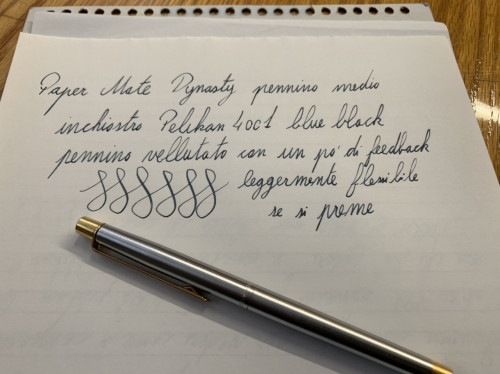 Paper Mate Dynasty pennino medio
inchiostro Pelikan 4001 blue black
pennino vellutato con un po' di feedback
leggermente flessibile
se si preme